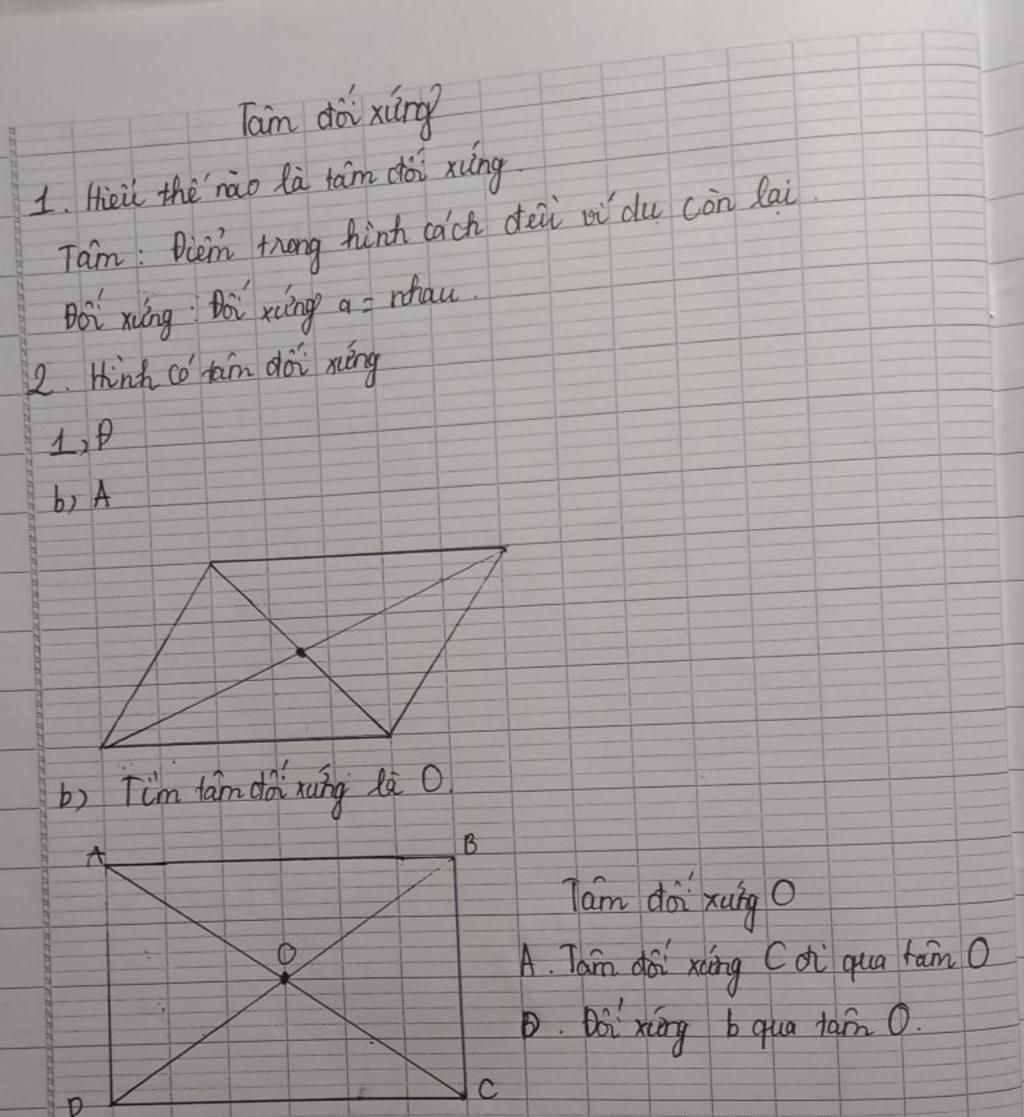 Tâm đối xứng
1. Hiểu thế nào là tâm đối xứng
Tâm: Điểm trong hình cách đều ví dụ còn lại.
Đối xứng: Đối xứng a = nhau.
2. Hình có tâm đối xứng
1, Đ
b) A
b) Tìm tâm đối xứng là O.
A B
Tâm đối xứng O
O
A. Tâm đối xứng C đi qua tâm O
D. Đối xứng b qua tâm O.
D C